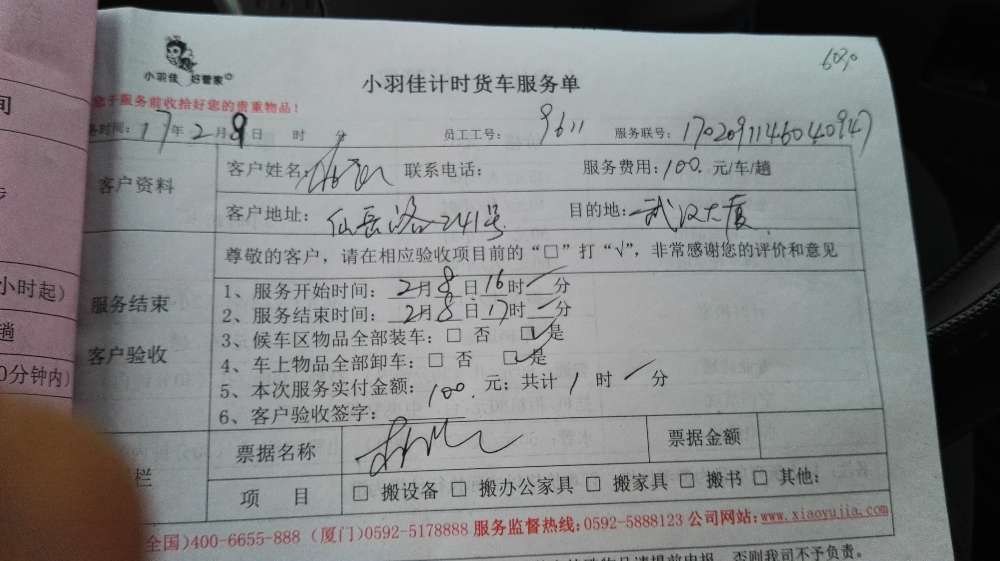 小羽佳 好管家
6030
小羽佳计时货车服务单
您于服务前收拾好您的贵重物品！
务时间：17年2月9日 时 分 员工工号：9611 服务联号：1702091146040947
客户资料
客户姓名： 联系电话： 服务费用：100.元/车/趟
客户地址：仙岳路241号 目的地：武汉大厦
尊敬的客户，请在相应验收项目前的“□”打“√”，非常感谢您的评价和意见
服务结束
客户验收
1、服务开始时间：2月8日16时 分
2、服务结束时间：2月8日17时 分
3、候车区物品全部装车：□ 否 ☑ 是
4、车上物品全部卸车：□ 否 ☑ 是
5、本次服务实付金额：100.元；共计1时 分
6、客户验收签字：
栏
票据名称 票据金额
项 目 □ 搬设备 □ 搬办公家具 □ 搬家具 □ 搬书 □ 其他：
全国)400-6655-888 (厦门)0592-5178888 服务监督热线:0592-5888123 公司网站:www.xiaoyujia.com
物品请提前申报，否则我司不予负责。
间
小时起)
趟
0分钟内)